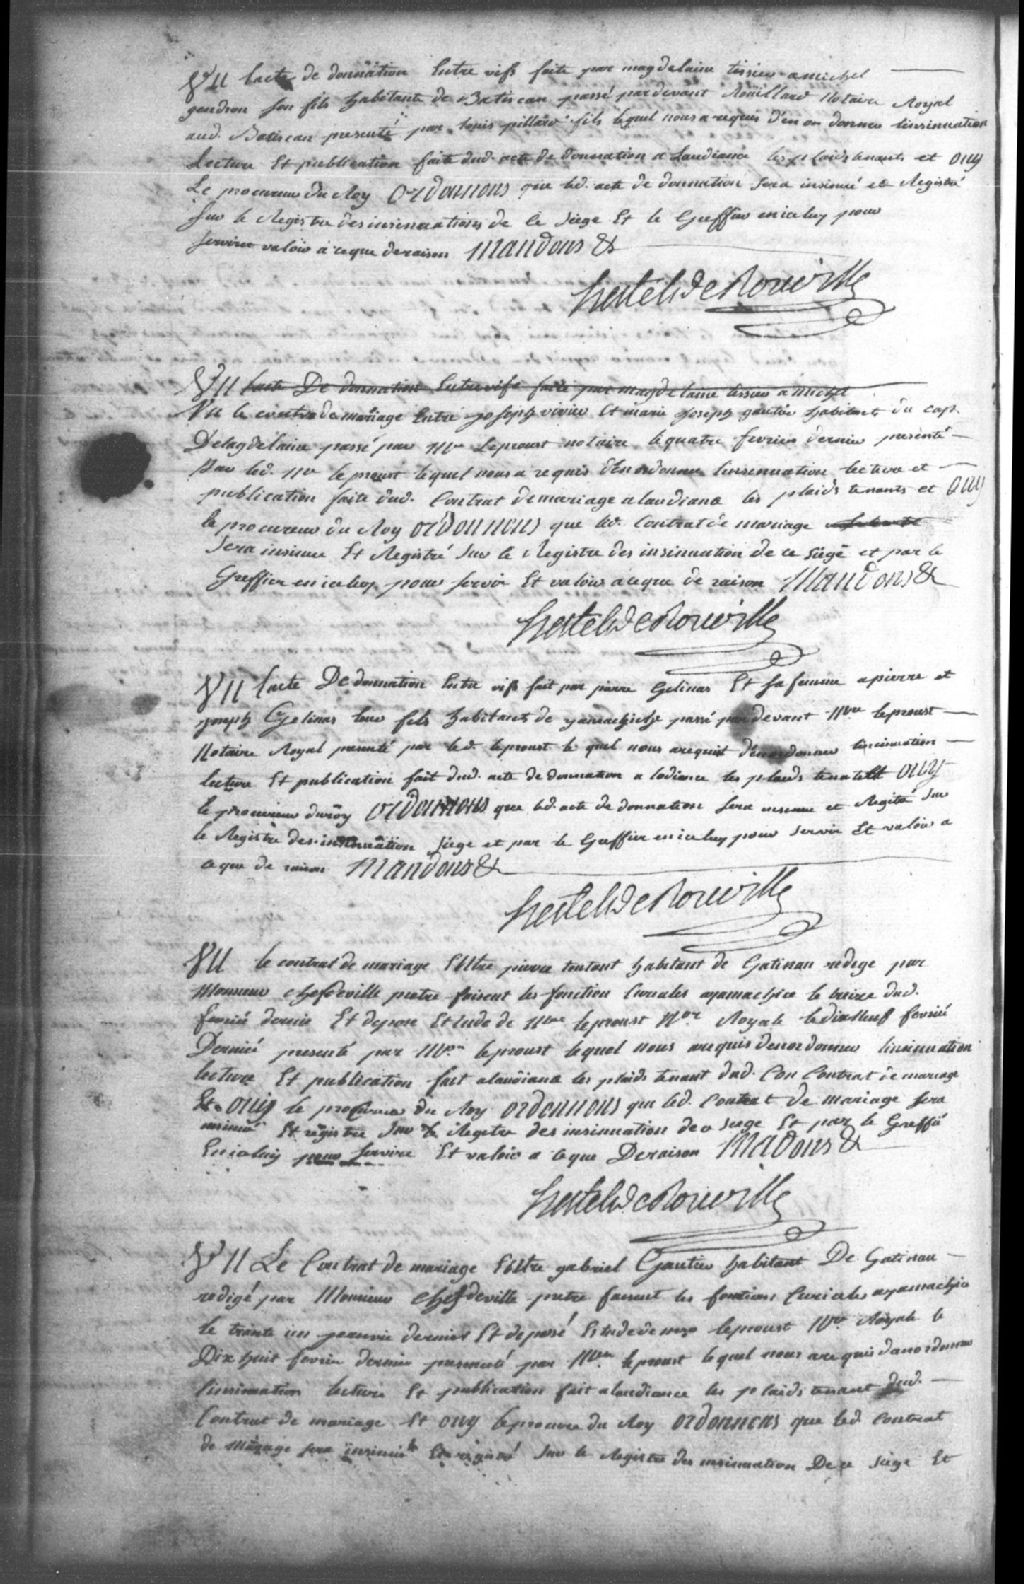 VU lacte de donnation Entre vifs faite par magdelaine tissieu a michel
gendron son fils habitants de Batiscan passé pardevant Rouillard Notaire Royal
aud. Batiscan presenté par louis pillard fils lequel nous a requis d'en ordonner linsinuation
Lecture Et publication faite dud. acte de donnation a Laudiance les plaids tenants et ouy
Le procureur du Roy ordonnons que led. acte de donnation sera insinué et Registré
sur le Registre des insinuations de ce siege Et le Greffier en iceluy pour
servir et valoir a ce que de raison Mandons &
hertel de Rouville
VU lacte De donnation Entre vifs faite par magdelaine tissieu a michel
Vu le contra de mariage Entre joseph vivier Et marie joseph gautier habitant du cap
Delagdelaine passé par Me Leproust notaire le quatre fevrier dernier presenté
par led. Me leproust lequel nous a requis d'en ordonner linsinuation lecture et
publication faite dud. Contrat de mariage a laudiance les plaids tenants et ouy
le procureur du Roy ordonnons que led. Contrat de mariage
sera insinué Et Registré sur le Registre des insinuation de ce siege et par le
Greffier en iceluy pour servir Et valoir a ce que de raison Mandons &
hertel de Rouville
VU lacte De donnation Entre vifs fait par pierre Gelinas Et sa femme a pierre et
joseph Gelinas leur fils habitants de yamachiche passé pardevant Me leproust
Notaire Royal presenté par led. leproust le quel nous a requis d'en ordonner linsinuation
lecture Et publication fait dud. acte de donnation a lodiance les plaids tenants Et ouy
le procureur du roy ordonnons que led. acte de donnation sera insinué et Registré sur
le Registre des insinuation siege et par le Greffier en iceluy pour servir Et valoir a
ce que de raison Mandons &
hertel de Rouville
VU le contrat de mariage Entre pierre toutant habitant de Gatinau redigé par
Monsieur chefdeville pretre faisant les fonction Curiales a yamachiche le treize dud.
fevrié dernier Et deposé Etude de Me leproust Nore Royale le dixneuf fevrié
Dernié presenté par Me leproust lequel nous a requis d'en ordonner linsinuation
lecture Et publication fait a laudiance les plaids tenant dud. Contrat de mariage
Et ouij le procureur du Roy ordonnons que led. Contrat de mariage sera
insinué Et registré sur le Registre des insinuation de ce siege Et par le Greffié
En iceluy pour servire Et valoir a ce que De raison Madons &
hertel de Rouville
VU Le Contrat de mariage Entre gabriel Gautier habitant De Gatinau
redigé par Monsieur chefdeville pretre faisant les fonctions Curiales a yamachice
le trante un janvié dernier Et deposé Etude de Me leproust Nore Royale le
Dix huit fevrier dernier presenté par Me leproust lequel nous a requis d'en ordonner
linsinuation lecture Et publication fait a laudiance les plaids tenant dud.
Contrat de mariage Et ouy le procureur du Roy ordonnons que led. Contrat
de mariage sera insinué Et registré sur le Registre des insinuation De ce siege Et